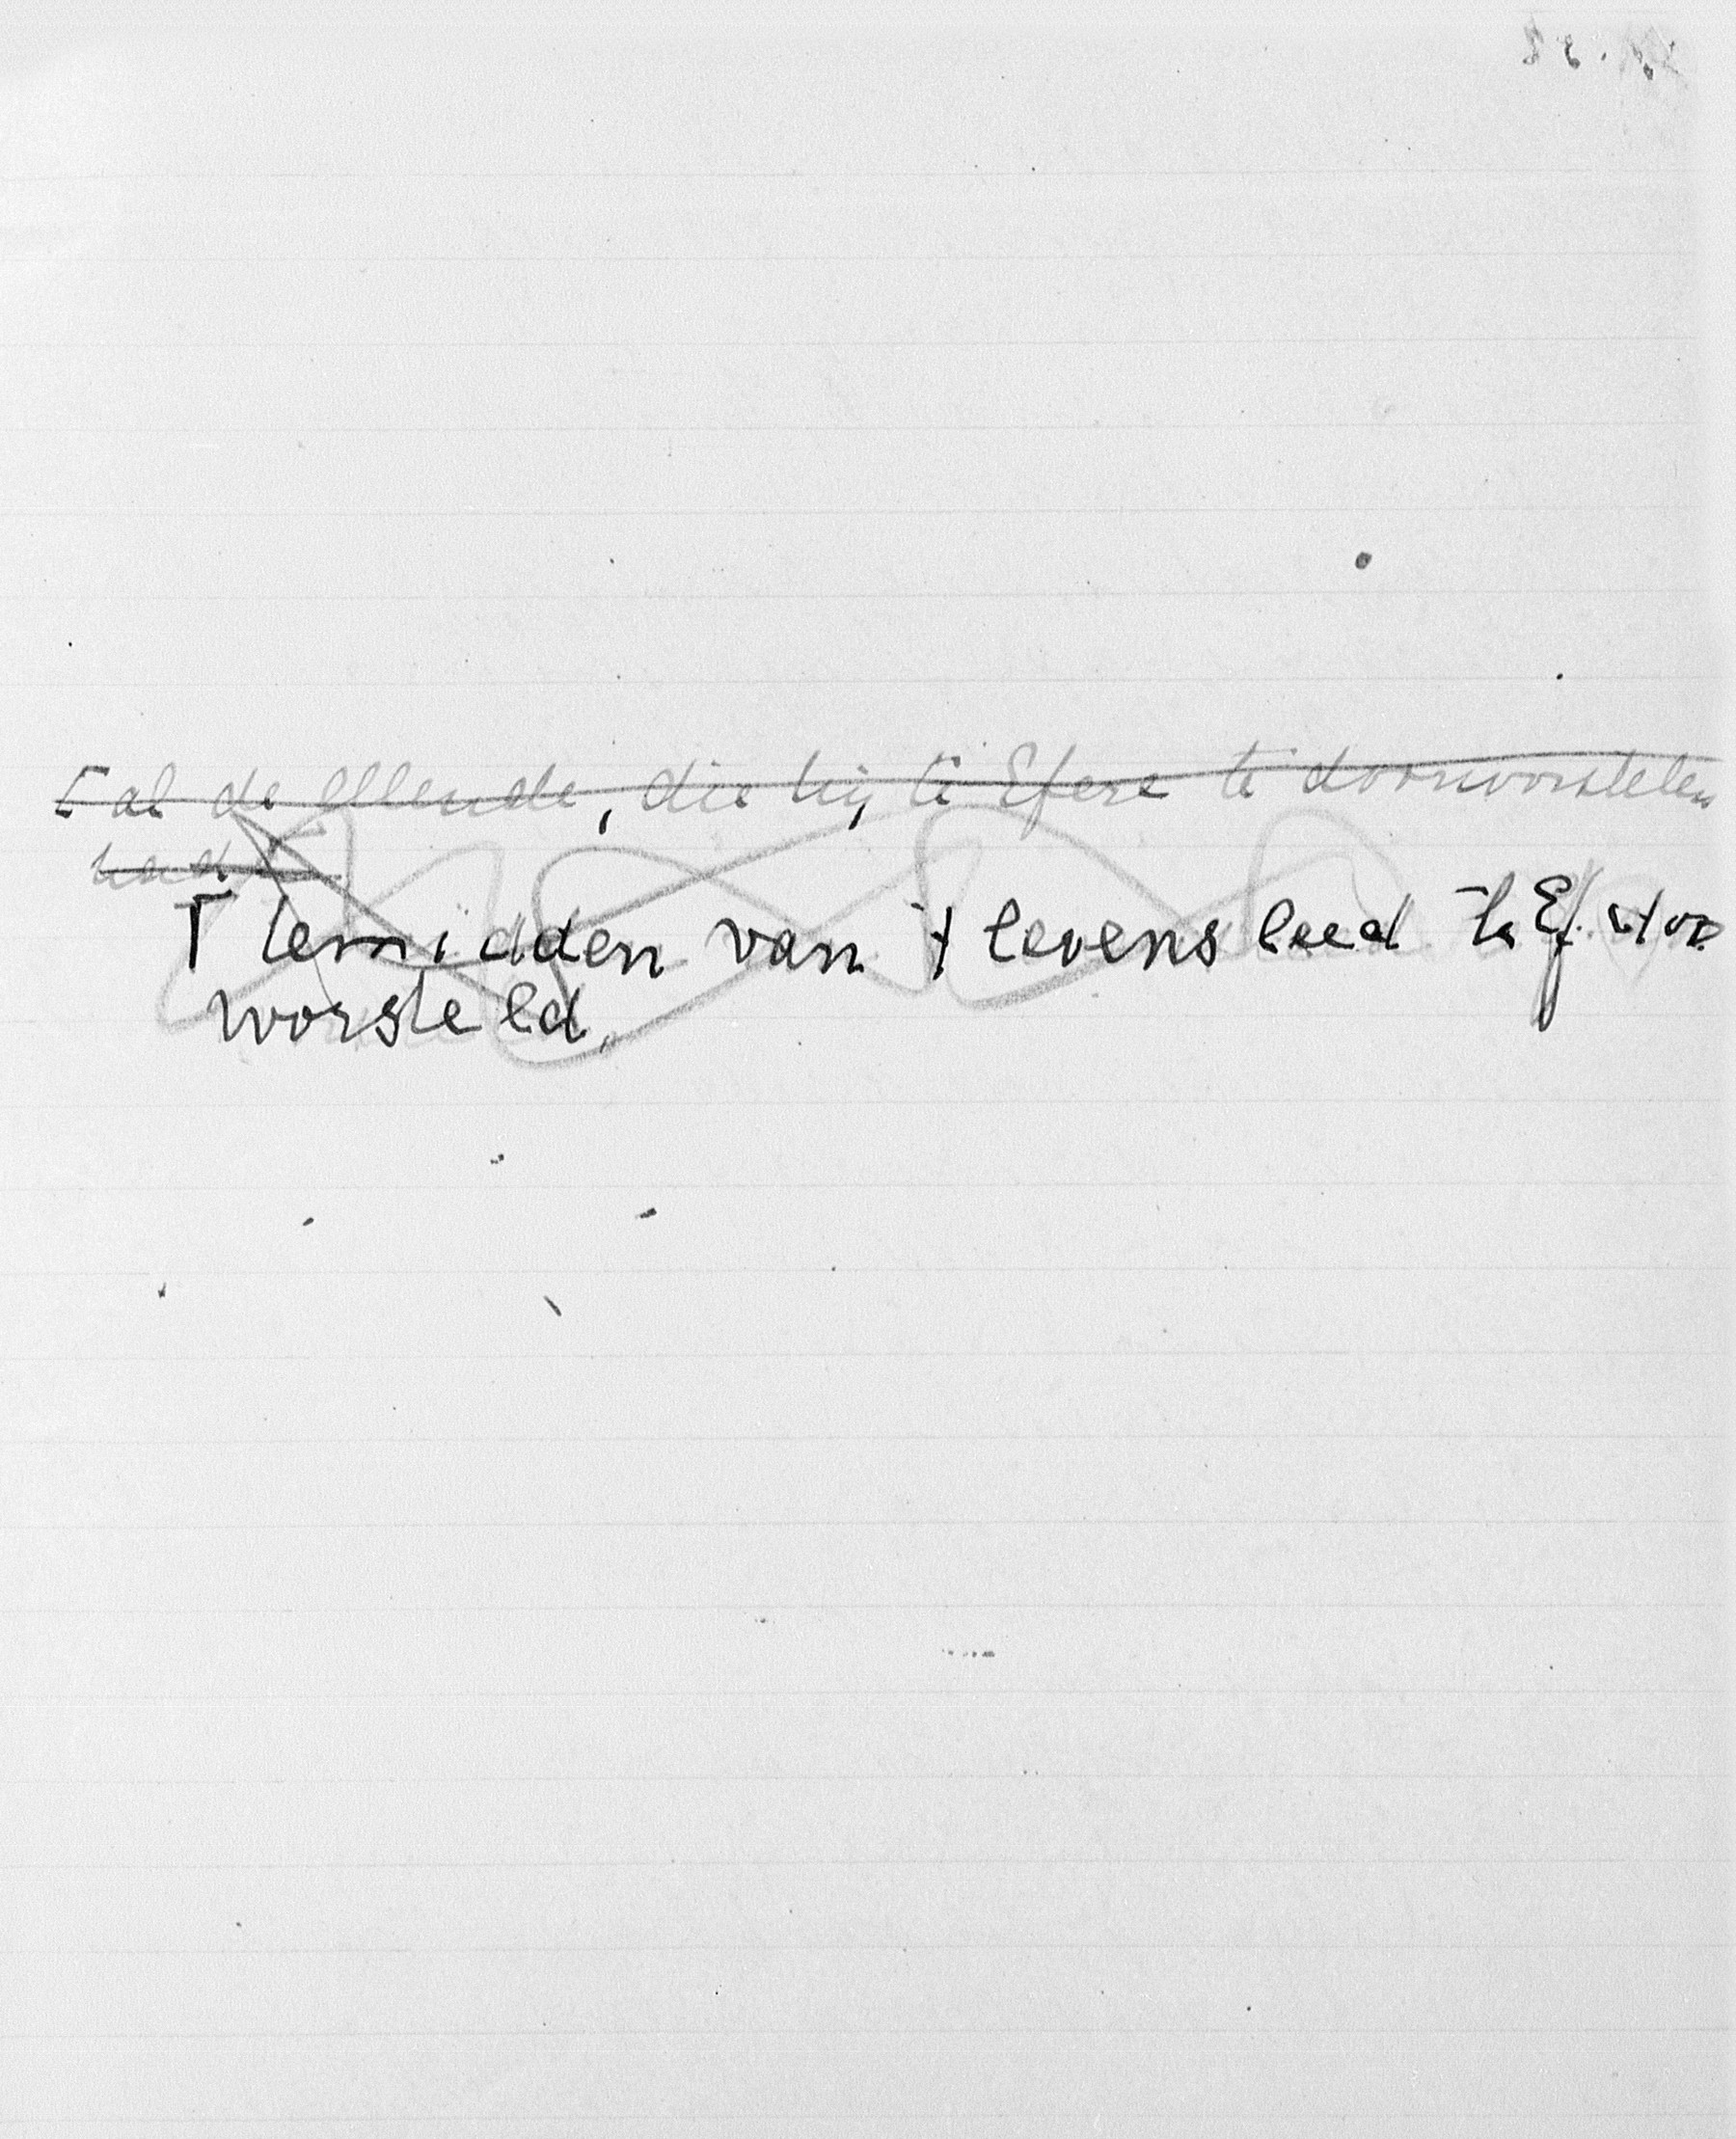 al de ellende, die hij te Efeze te doorworstelen
had.
temidden van 't levensleed te Ef.
worsteld.